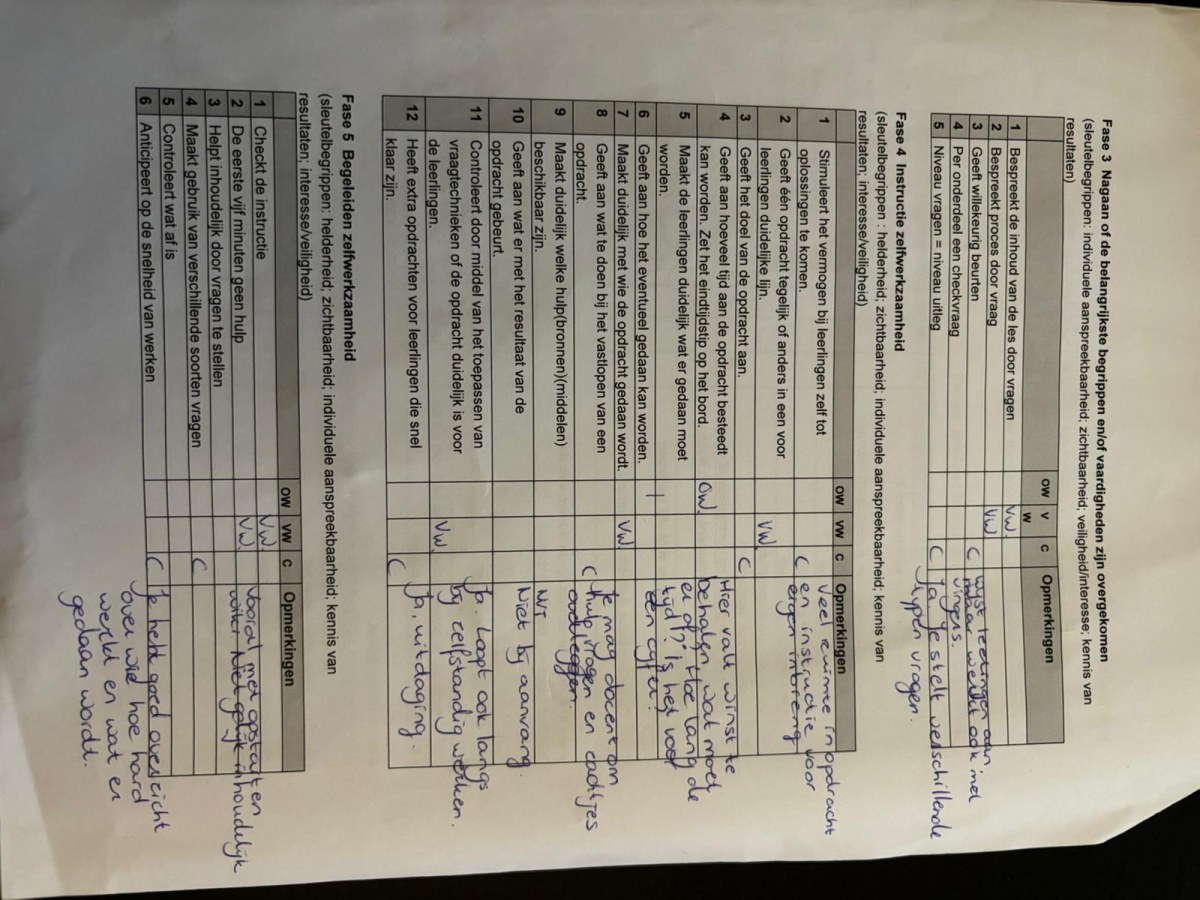 Fase 3 Nagaan of de belangrijkste begrippen en/of vaardigheden zijn overgekomen
(sleutelbegrippen: individuele aanspreekbaarheid; zichtbaarheid; veiligheid/interesse; kennis van
resultaten)
OW V W C Opmerkingen
1 Bespreekt de inhoud van de les door vragen VW.
2 Bespreekt proces door vraag VW
3 Geeft willekeurig beurten C wijst leerlingen aan
maar werkt ook met
4 Per onderdeel een checkvraag vingers.
5 Niveau vragen = niveau uitleg C Ja je stelt verschillende
typen vragen.
Fase 4 Instructie zelfwerkzaamheid
(sleutelbegrippen : helderheid; zichtbaarheid; individuele aanspreekbaarheid; kennis van
resultaten; interesse/veiligheid)
OW VW C Opmerkingen
1 Stimuleert het vermogen bij leerlingen zelf tot
oplossingen te komen. C Veel ruimte in opdracht
en instructie voor
eigen inbreng
2 Geeft één opdracht tegelijk of anders in een voor
leerlingen duidelijke lijn. VW
3 Geeft het doel van de opdracht aan. C
4 Geeft aan hoeveel tijd aan de opdracht besteedt
kan worden. Zet het eindtijdstip op het bord. OW. Hier valt winst te
behalen, wat moet
5 Maakt de leerlingen duidelijk wat er gedaan moet
worden. er af? Hoe lang de
tijd? Is het voor
6 Geeft aan hoe het eventueel gedaan kan worden. | een cijfer?
7 Maakt duidelijk met wie de opdracht gedaan wordt. VW
8 Geeft aan wat te doen bij het vastlopen van een
opdracht. C Je mag docent om
hulp vragen en
9 Maakt duidelijk welke hulp(bronnen)(middelen)
beschikbaar zijn. NVT
10 Geeft aan wat er met het resultaat van de
opdracht gebeurt. Niet bij aanvang.
11 Controleert door middel van het toepassen van
vraagtechnieken of de opdracht duidelijk is voor
de leerlingen. VW Ja. Loopt ook langs
bij zelfstandig werken.
12 Heeft extra opdrachten voor leerlingen die snel
klaar zijn. C Ja, uitdaging.
Fase 5 Begeleiden zelfwerkzaamheid
(sleutelbegrippen: helderheid; zichtbaarheid; individuele aanspreekbaarheid; kennis van
resultaten; interesse/veiligheid)
OW VW C Opmerkingen
1 Checkt de instructie VW. Vooral met opstarten
2 De eerste vijf minuten geen hulp VW. Niet gelijk inhoudelijk
3 Helpt inhoudelijk door vragen te stellen
4 Maakt gebruik van verschillende soorten vragen C
5 Controleert wat af is
6 Anticipeert op de snelheid van werken C Je hebt goed overzicht
over wie hoe hard
werkt en wat er
gedaan wordt.